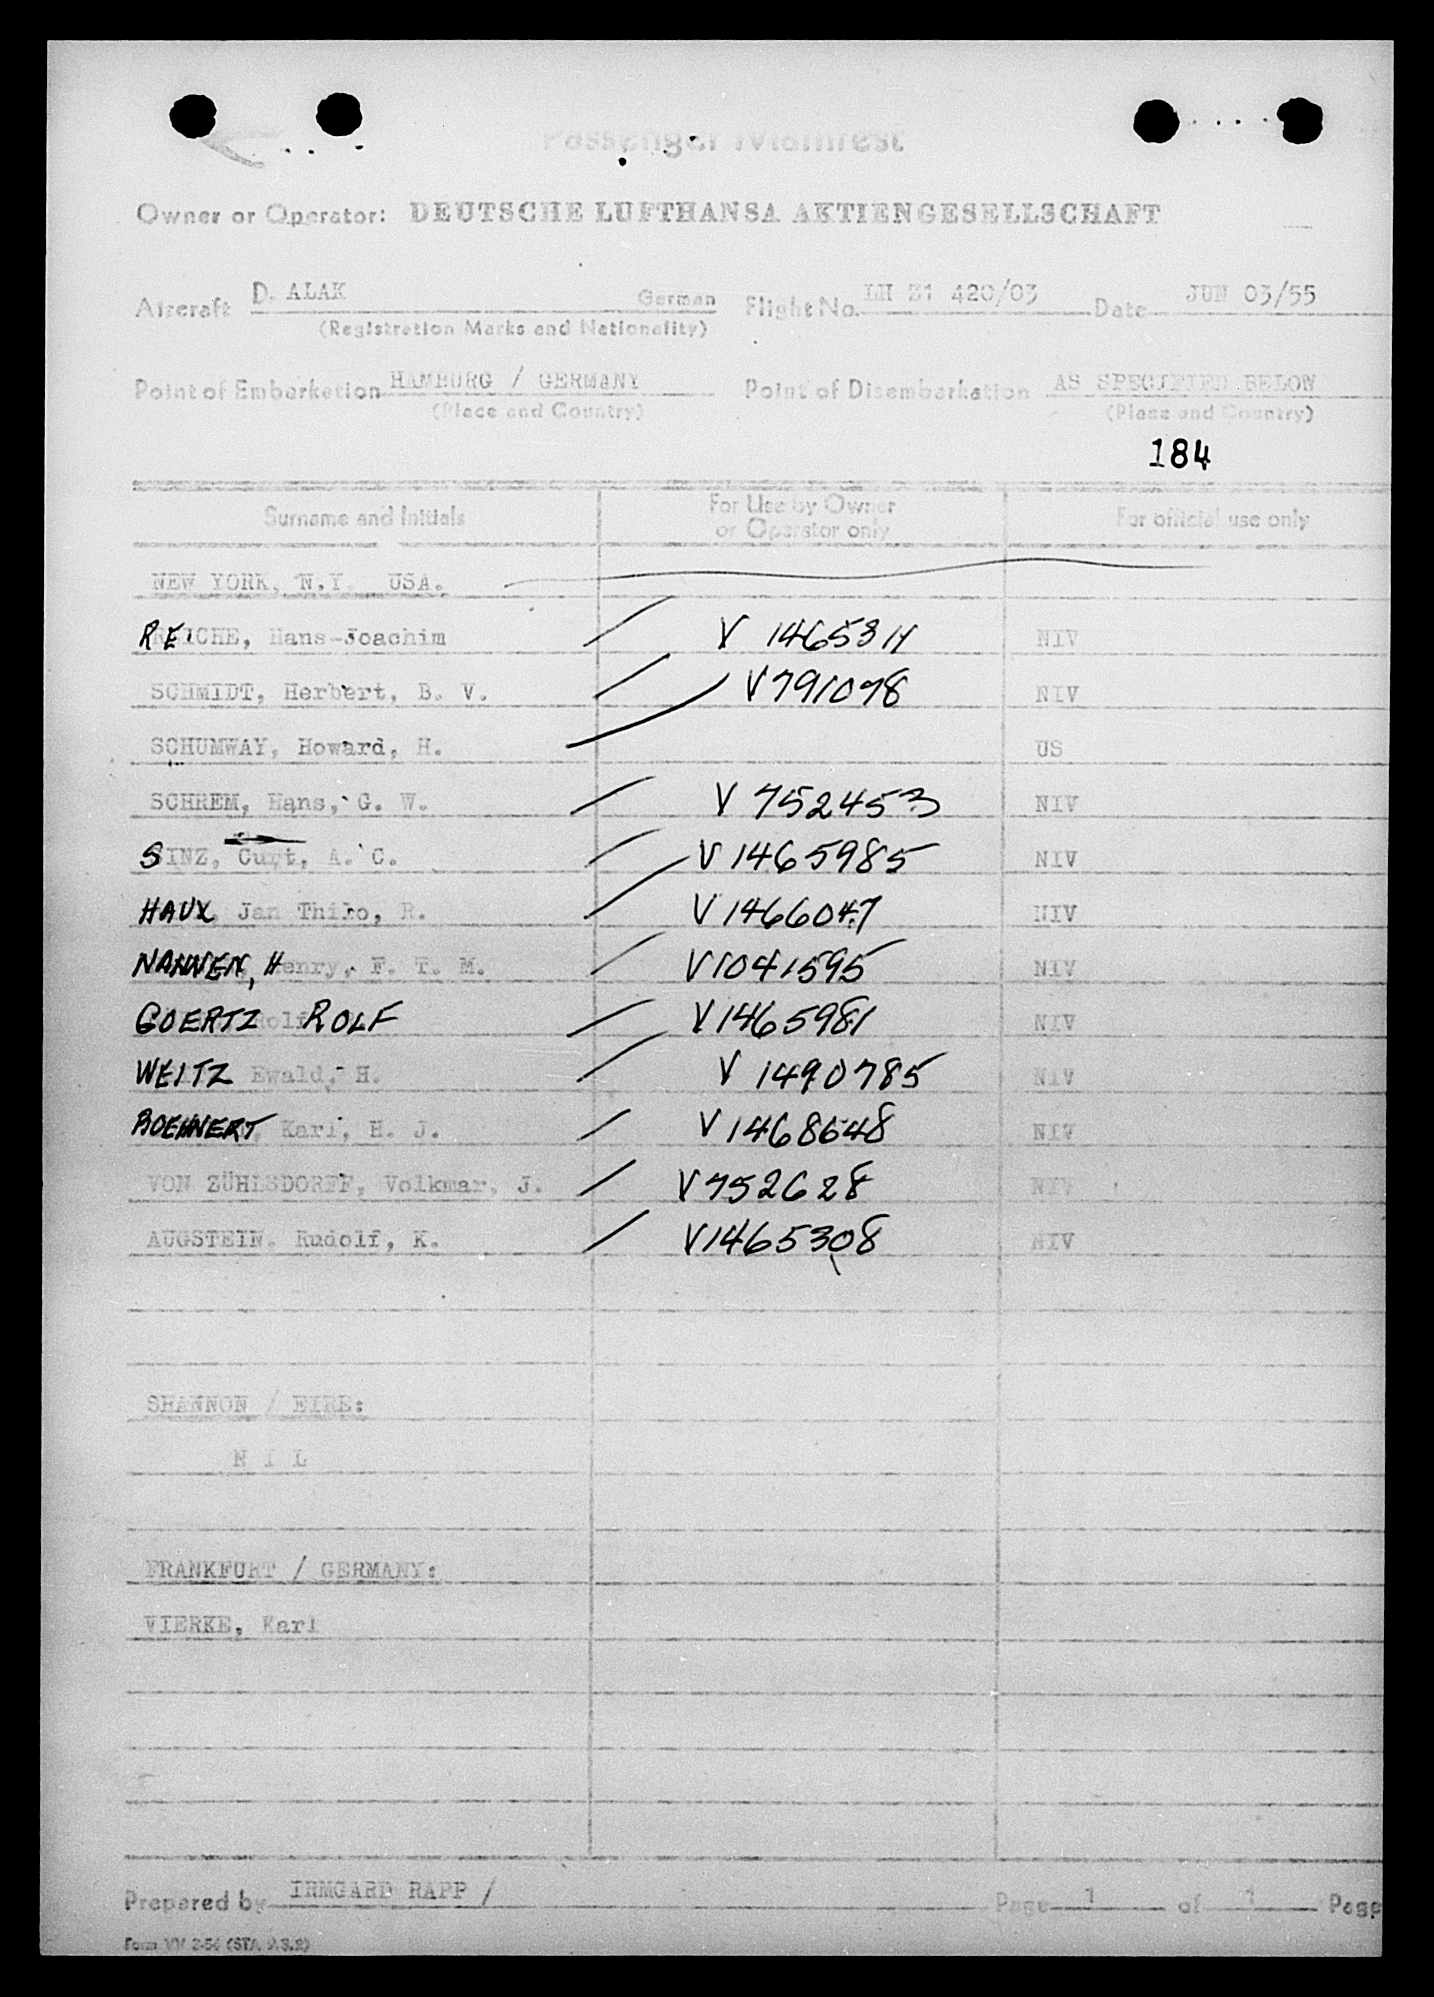 Passenger Manifest
Owner or Operator: DEUTSCHE LUFTHANSA AKTIENGESELLSCHAFT
Aircraft D. ALAK German Flight No. LH 420/03 Date JUN 03/55
(Registration Marks and Nationality)
Point of Embarkation HAMBURG / GERMANY Point of Disembarkation AS SPECIFIED BELOW
(Place and Country) (Place and Country)
184
Surname and Initials For Use by Owner or Operator only For official use only
NEW YORK, N.Y. USA.
REICHE, Hans-Joachim V 1465311 NIV
SCHMIDT, Herbert, B. V. V791078 NIV
SCHUMWAY, Howard, H. US
SCHREM, Hans, G. W. V 752453 NIV
SINZ, Curt, A. C. V 1465985 NIV
HAUX, Jan Thilo, R. V 1466047 NIV
NANNEN, Henry, F. T. M. V1041595 NIV
GOERTZ ROLF V1465981 NIV
WEITZ Ewald, H. V 1490785 NIV
BOEHNERT, Karl, H. J. V 1468648 NIV
VON ZÜHLSDORFF, Volkmar, J. V752628 NIV
AUGSTEIN. Rudolf, K. V1465308 NIV
SHANNON / EIRE:
N I L
FRANKFURT / GERMANY:
VIERKE, Karl
Prepared by IRMGARD RAPP / Page 1 of 1 Page